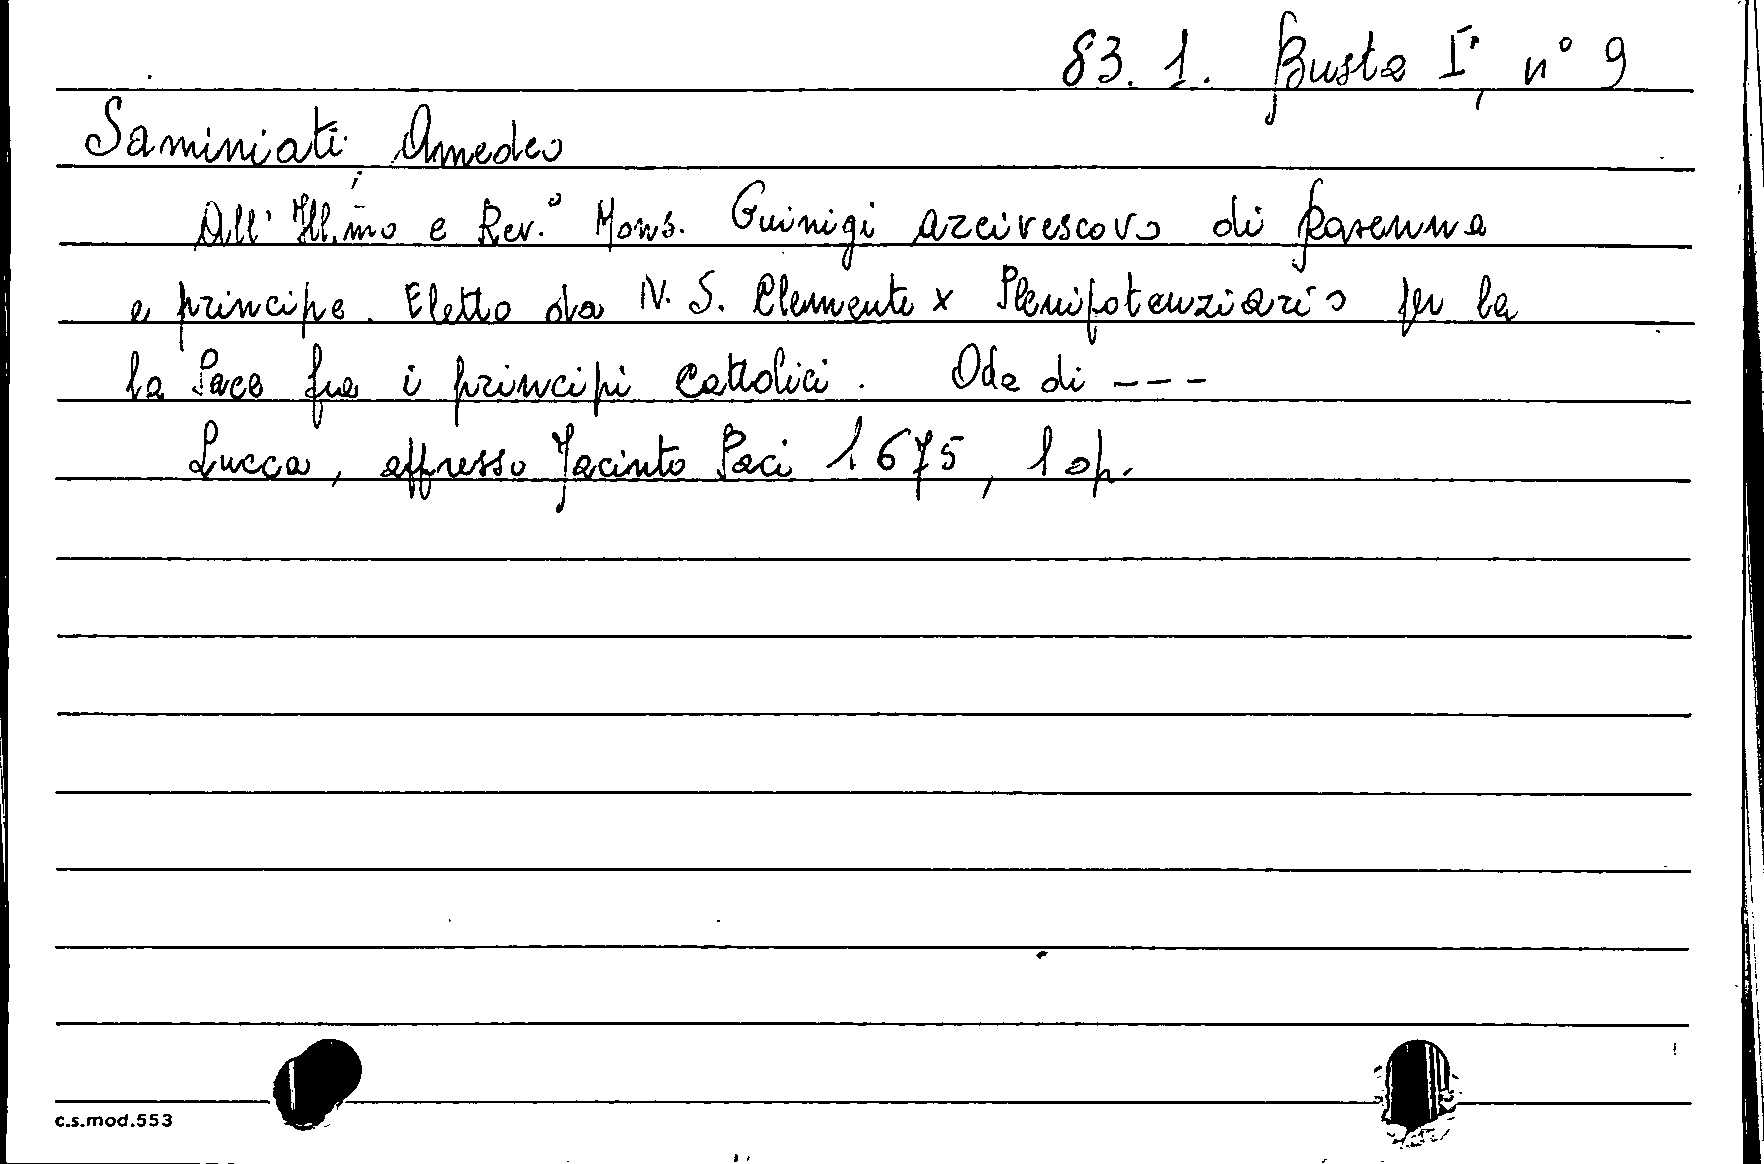 83. 1. Busta I, n° 9
Saminiati, Amedeo
All' Ill.mo e Rev.° Mons. Guinigi arcivescovo di Ravenna
e principe. Eletto da N. S. Clemente X Plenipotenziario per la
la Pace fra i principi cattolici. Ode di ---
Lucca, appresso Jacinto Paci 1675, 1 op.
c.s.mod.553